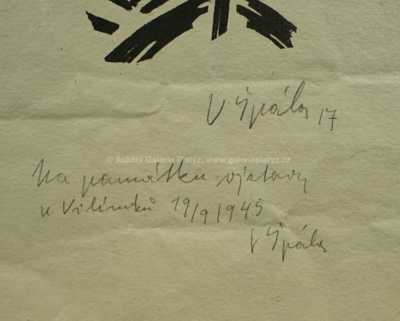 V Špála 17
© Aukční Galerie Platýz, www.galerieplatyz.cz
Na památku výstavy
u Vilímků 19/9 1945
V Špála